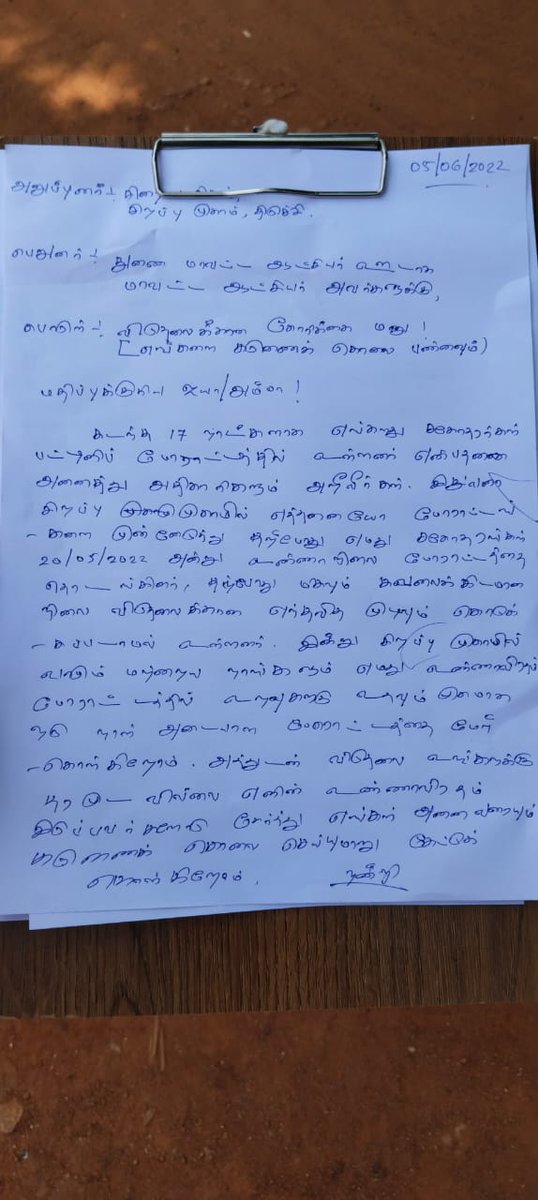 05/06/2022
அனுப்புனர் :-
சிறப்பு முகாம், திருச்சி.
பெறுனர் :- துணை மாவட்ட ஆட்சியர் ஊடாக
மாவட்ட ஆட்சியர் அவர்களுக்கு,
பொருள் :- விடுதலைக்கான கோரிக்கை மனு!
[எங்களை கருணைக் கொலை பண்ணவும்)
மதிப்புக்குரிய ஐயா/அம்மா!
கடந்த 17 நாட்களாக எங்களது சகோதரர்கள்
பட்டினிப் போராட்டத்தில் உள்ளனர் என்பதனை
அனைத்து அதிகாரிகளும் அறிவீர்கள். இதுவரை
சிறப்பு முகாமில் எத்தனையோ போராட்டங்
-களை முன்னெடுத்து தற்போது எமது சகோதரர்கள்
20/05/2022 அன்று உண்ணாநிலை போராட்டத்தை
தொடங்கினர், தற்போது மிகவும் கவலைக்கிடமான
நிலை விடுதலைக்கான எந்தவித முடிவும் கொடுக்
-கப்படாமல் உள்ளனர். இன்று சிறப்பு முகாமில்
வாழும் மற்றைய நாங்களும் எமது உண்ணாவிரதம்
போராட்டத்தில் உறவுகளுக்கு உதவும் விதமாக
ஒரு நாள் அடையாள போராட்டத்தை மேற்
-கொள்கிறோம். அத்துடன் விடுதலை உங்களுக்கு
தர முடியவில்லை எனின் உண்ணாவிரதம்
இருப்பவர்களோடு சேர்த்து எங்கள் அனைவரையும்
கருணைக் கொலை செய்யுமாறு கேட்டுக்
கொள்கிறோம். நன்றி